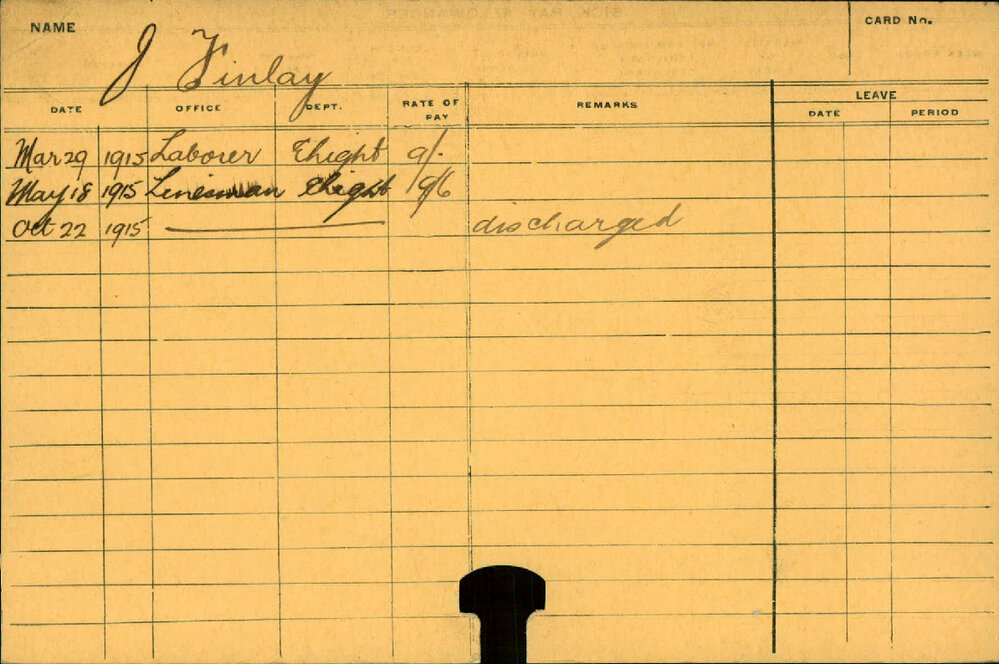 NAME
J Finlay
CARD No.
DATE OFFICE DEPT. RATE OF PAY REMARKS LEAVE
DATE PERIOD
Mar 29 1915 Laborer Elight 9/-
May 18 1915 Linesman Elight
Oct 22 1915 discharged